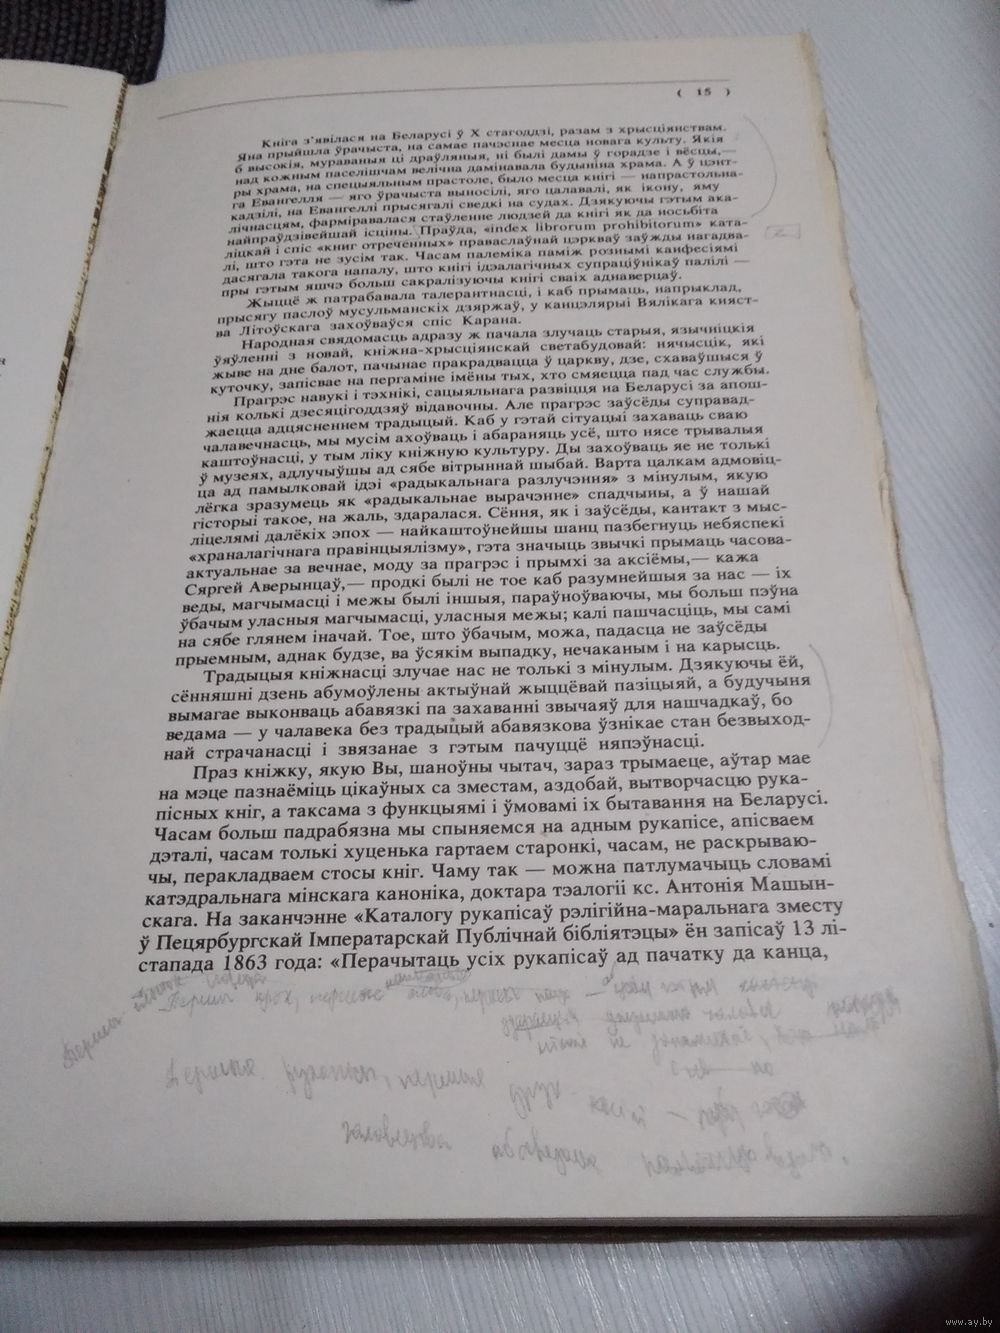 ( 15 )
Кніга з’явілася на Беларусі ў X стагоддзі, разам з хрысціянствам.
Яна прыйшла ўрачыста, на самае пачэснае месца новага культу. Якія
б высокія, мураваныя ці драўляныя, ні былі дамы ў горадзе і вёсцы,—
над кожным паселішчам велічна дамінавала будыніна храма. А ў цэнт-
ры храма, на спецыяльным прастоле, было месца кнігі — напрастольна-
га Евангелля — яго ўрачыста выносілі, яго цалавалі, як ікону, яму
кадзілі, на Евангеллі прысягалі сведкі на судах. Дзякуючы гэтым ака-
лічнасцям, фарміравалася стаўленне людзей да кнігі як да носьбіта
найпраўдзівейшай ісціны. Праўда, «index librorum prohibitorum» ката-
ліцкай і спіс «книг отреченных» праваслаўнай цэркваў заўжды нагадва-
лі, што гэта не зусім так. Часам палеміка паміж рознымі канфесіямі
дасягала такога напалу, што кнігі ідэалагічных супраціўнікаў палілі —
пры гэтым яшчэ больш сакралізуючы кнігі сваіх аднаверцаў.
Жыццё ж патрабавала талерантнасці, і каб прымаць, напрыклад,
прысягу паслоў мусульманскіх дзяржаў, у канцэлярыі Вялікага княст-
ва Літоўскага захоўваўся спіс Карана.
Народная свядомасць адразу ж пачала злучаць старыя, язычніцкія
ўяўленні з новай, кніжна-хрысціянскай светабудовай: нячысцік, які
жыве на дне балот, пачынае пракрадвацца ў царкву, дзе, схаваўшыся ў
куточку, запісвае на пергаміне імёны тых, хто смяецца пад час службы.
Прагрэс навукі і тэхнікі, сацыяльнага развіцця на Беларусі за апош-
нія колькі дзесяцігоддзяў відавочны. Але прагрэс заўсёды суправад-
жаецца адцясненнем традыцый. Каб у гэтай сітуацыі захаваць сваю
чалавечнасць, мы мусім ахоўваць і абараняць усё, што нясе трывалыя
каштоўнасці, у тым ліку кніжную культуру. Ды захоўваць яе не толькі
ў музеях, адлучыўшы ад сябе вітрыннай шыбай. Варта цалкам адмовіц-
ца ад памылковай ідэі «радыкальнага разлучэння» з мінулым, якую
лёгка зразумець як «радыкальнае вырачэнне» спадчыны, а ў нашай
гісторыі такое, на жаль, здаралася. Сёння, як і заўсёды, кантакт з мыс-
ліцелямі далёкіх эпох — найкаштоўнейшы шанц пазбегнуць небяспекі
«храналагічнага правінцыялізму», гэта значыць звычкі прымаць часова-
актуальнае за вечнае, моду за прагрэс і прымхі за аксіёмы,— кажа
Сяргей Аверынцаў,— продкі былі не тое каб разумнейшыя за нас — іх
веды, магчымасці і межы былі іншыя, параўноўваючы, мы больш пэўна
ўбачым уласныя магчымасці, уласныя межы; калі пашчасціць, мы самі
на сябе глянем іначай. Тое, што ўбачым, можа, падасца не заўсёды
прыемным, аднак будзе, ва ўсякім выпадку, нечаканым і на карысць.
Традыцыя кніжнасці злучае нас не толькі з мінулым. Дзякуючы ёй,
сённяшні дзень абумоўлены актыўнай жыццёвай пазіцыяй, а будучыня
вымагае выконваць абавязкі па захаванні звычаяў для нашчадкаў, бо
ведама — у чалавека без традыцый абавязкова ўзнікае стан безвыход-
най страчанасці і звязанае з гэтым пачуццё няпэўнасці.
Праз кніжку, якую Вы, шаноўны чытач, зараз трымаеце, аўтар мае
на мэце пазнаёміць цікаўных са зместам, аздобай, вытворчасцю рука-
пісных кніг, а таксама з функцыямі і ўмовамі іх бытавання на Беларусі.
Часам больш падрабязна мы спыняемся на адным рукапісе, апісваем
дэталі, часам толькі хуценька гартаем старонкі, часам, не раскрываю-
чы, перакладваем стосы кніг. Чаму так — можна патлумачыць словамі
катэдральнага мінскага каноніка, доктара тэалогіі кс. Антонія Машын-
скага. На заканчэнне «Каталогу рукапісаў рэлігійна-маральнага зместу
ў Пецярбургскай Імператарскай Публічнай бібліятэцы» ён запісаў 13 лі-
стапада 1863 года: «Перачытаць усіх рукапісаў ад пачатку да канца,
www.ay.by